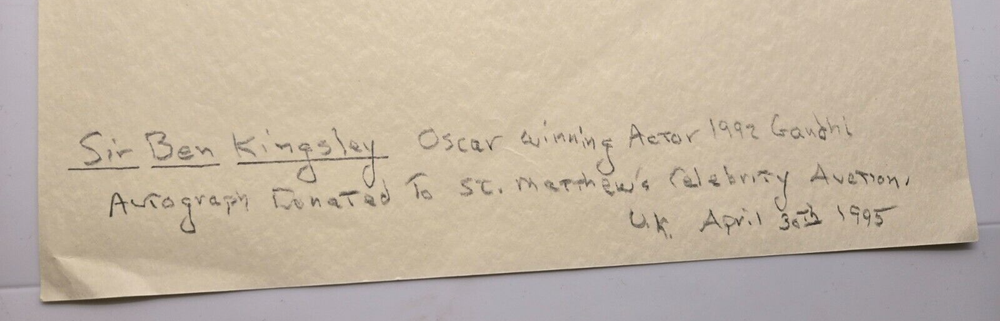 Sir Ben Kingsley Oscar winning Actor 1992 Gandhi
Autograph Donated To St. Matthew's Celebrity Auction,
U.K. April 30th 1995